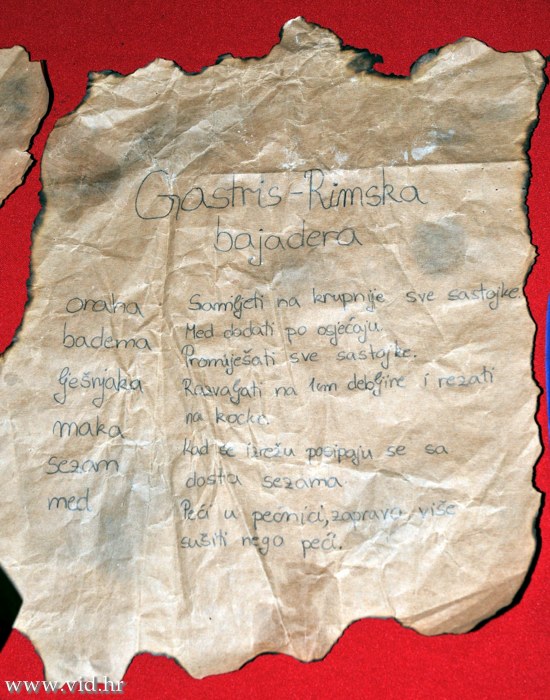 Gastris-Rimska
bajadera
oraha
badema
lješnjaka
maka
sezam
med
Samljeti na krupnije sve sastojke.
Med dodati po osjećaju.
Promiješati sve sastojke.
Razvaljati na 1cm debljine i rezati
na kocke.
Kad se izrežu posipaju se sa
dosta sezama
Peći u pećnici, zapravo više
sušiti nego peći.
www.vid.hr